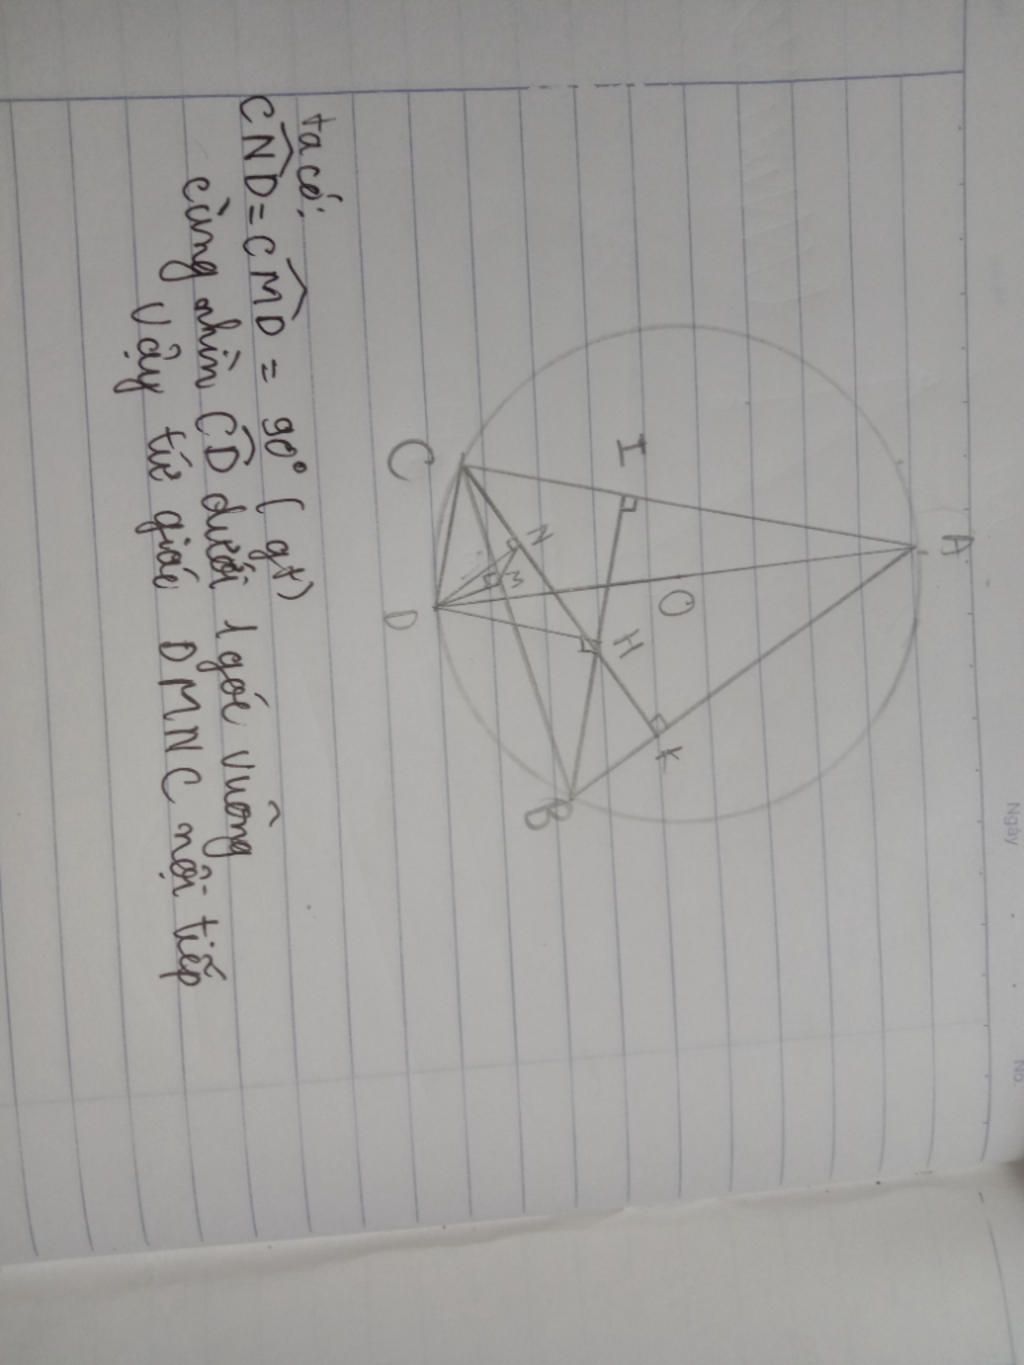 Ngày
No.
A
I
O
H
K
N
M
C
D
B
ta có:
CND = CMD = 90° (gt)
cùng nhìn CD dưới 1 góc vuông
Vậy tứ giác DMNC nội tiếp